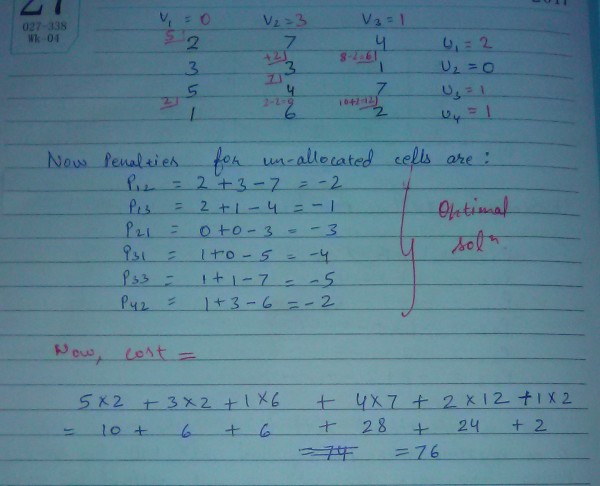 27
027-338
Wk-04
2011
V₁ = 0 V₂ = 3 V₃ = 1
5
2 7 4 U₁ = 2
+2 8-2=6
3 3 1 U₂ = 0
7
5 4 7 U₃ = 1
2 2-2=0 10+2=12
1 6 2 U₄ = 1
Now Penalties for un-allocated cells are :
P₁₂ = 2 + 3 - 7 = -2
P₁₃ = 2 + 1 - 4 = -1
P₂₁ = 0 + 0 - 3 = -3
P₃₁ = 1 + 0 - 5 = -4
P₃₃ = 1 + 1 - 7 = -5
P₄₂ = 1 + 3 - 6 = -2
Optimal
solⁿ
Now, cost =
5×2 + 3×2 + 1×6 + 4×7 + 2×12 + 1×2
= 10 + 6 + 6 + 28 + 24 + 2
= 74 = 76